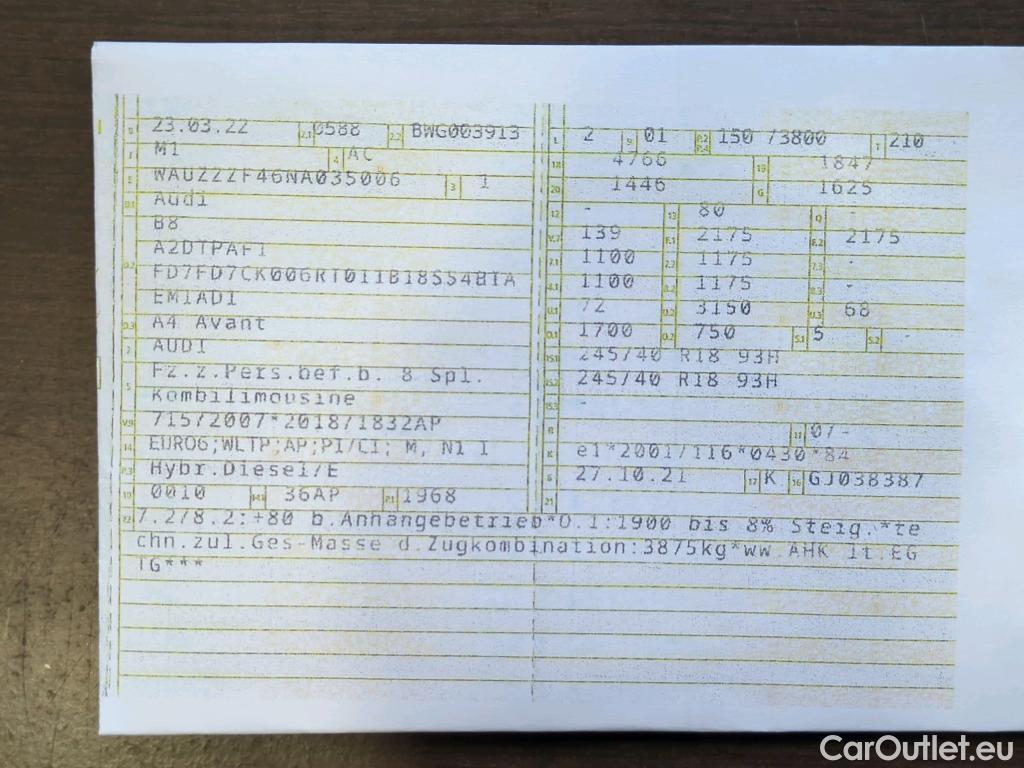 B 23.03.22 2.1 0588 2.2 BWG003913
J M1 4 AC
E WAUZZZF46NA035006 3 1
D.1 Audi
B8
D.2 A2DTPAF1
FD7FD7CK006RT011B18S54BTA
EM1AD1
D.3 A4 Avant
2 AUDI
5 Fz.z.Pers.bef.b. 8 Spl.
Kombilimousine
V.9 715/2007*2018/1832AP
14 EURO6;WLTP;AP;PI/CI; M, N1 I
P.3 Hybr.Diesel/E
10 0010 14.1 36AP P.1 1968
L 2 9 01 P.2 P.4 150 /3800 T 210
18 4766 19 1847
20 1446 G 1625
12 - 13 80 Q -
V.7 139 F.1 2175 F.2 2175
7.1 1100 7.2 1175 7.3 -
8.1 1100 8.2 1175 8.3 -
U.1 72 U.2 3150 U.3 68
O.1 1700 O.2 750 S.1 5 S.2 -
15.1 245/40 R18 93H
15.2 245/40 R18 93H
15.3 -
R 11 0/-
K e1*2001/116*0430*84
6 27.10.21 17 K 16 GJ038387
21
22 7.2/8.2:+80 b.Anhängebetrieb*O.1:1900 bis 8% Steig.*te
chn.zul.Ges-Masse d.Zugkombination:3875kg*ww.AHK lt.EG
TG***
CarOutlet.eu